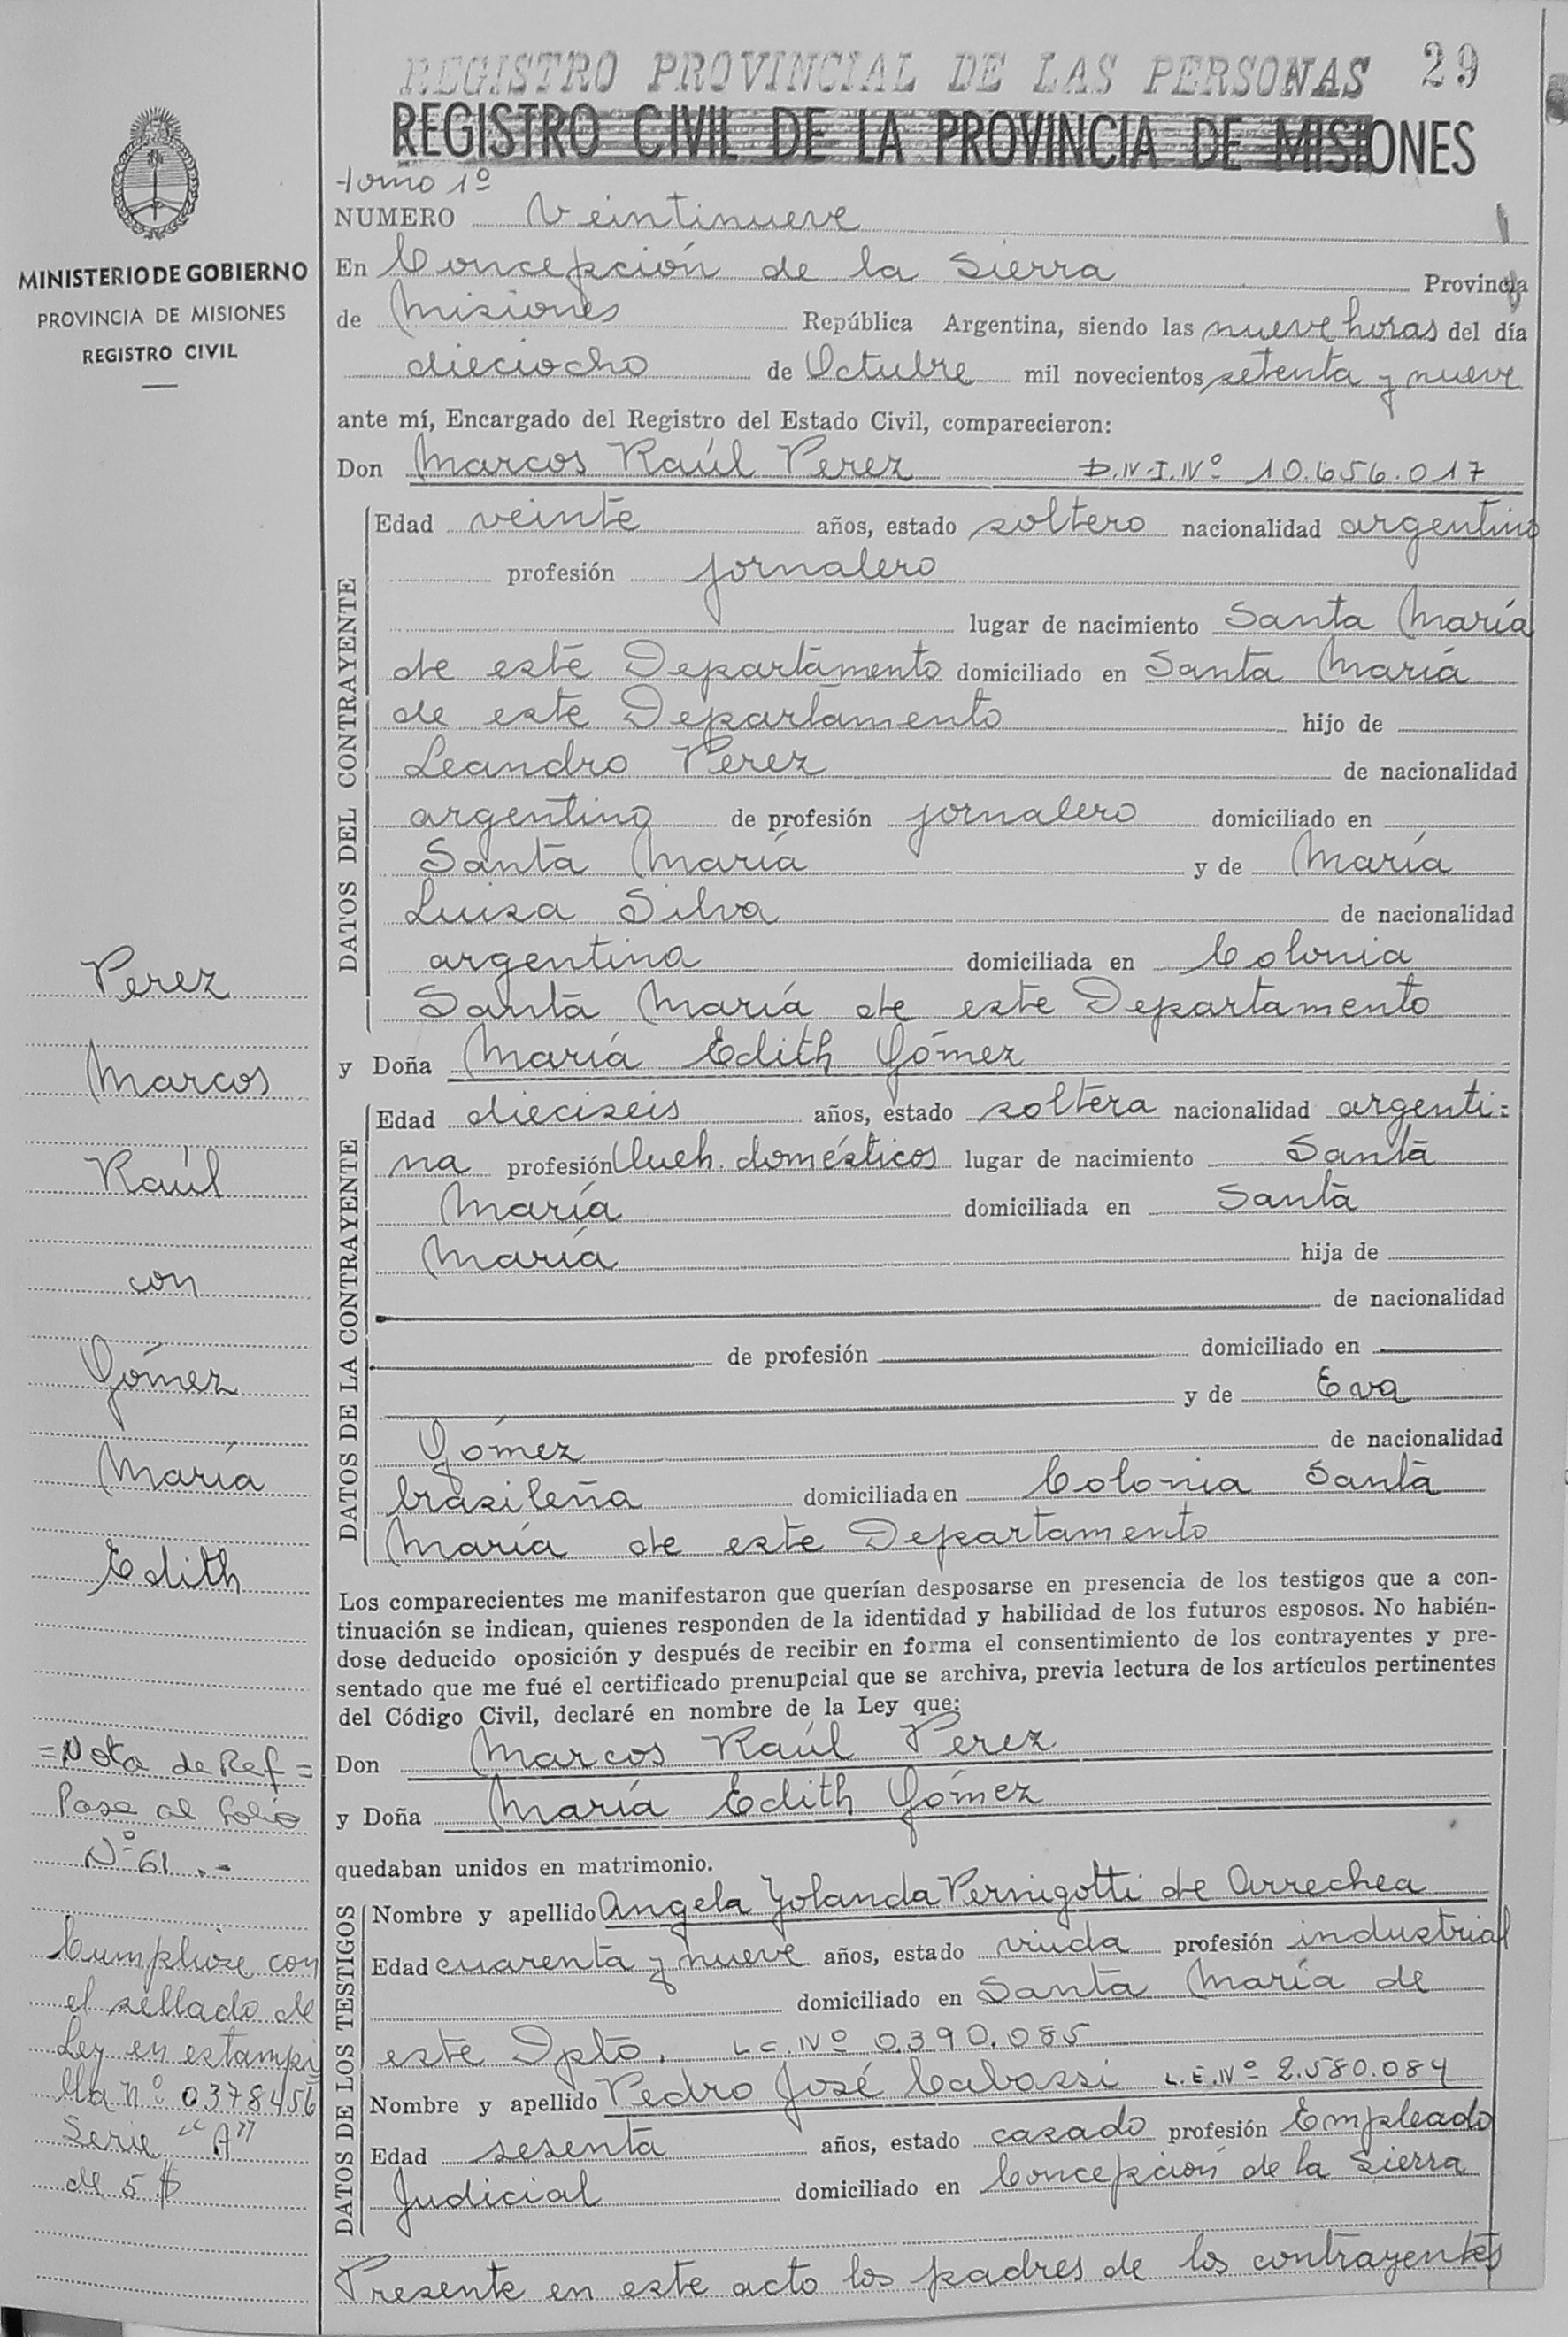 REGISTRO PROVINCIAL DE LAS PERSONAS 29
REGISTRO CIVIL DE LA PROVINCIA DE MISIONES
MINISTERIO DE GOBIERNO
PROVINCIA DE MISIONES
REGISTRO CIVIL
Perez
Marcos
Raúl
con
Gómez
María
Edith
=Nota de Ref=
Pasa al folio
Nº 61.-
Cumplióse con
el sellado de
Ley en estampi
lla nº 0378456
Serie "A"
de 5 $
tomo 1º
NUMERO Veintinueve
En Concepción de la Sierra Provincia
de Misiones República Argentina, siendo las nueve horas del día
dieciocho de Octubre mil novecientos setenta y nueve
ante mí, Encargado del Registro del Estado Civil, comparecieron:
Don Marcos Raúl Perez D.N.I.Nº 10.656.017
DATOS DEL CONTRAYENTE
Edad veinte años, estado soltero nacionalidad argentino
profesión jornalero
lugar de nacimiento Santa María
de este Departamento domiciliado en Santa María
de este Departamento hijo de
Leandro Perez de nacionalidad
argentino de profesión jornalero domiciliado en
Santa María y de María
Luisa Silva de nacionalidad
argentina domiciliada en Colonia
Santa María de este Departamento
y Doña María Edith Gómez
DATOS DE LA CONTRAYENTE
Edad dieciseis años, estado soltera nacionalidad argenti=
na profesión Queh. domésticos lugar de nacimiento Santa
María domiciliada en Santa
María hija de
de nacionalidad
de profesión domiciliado en
y de Eva
Gómez de nacionalidad
brasileña domiciliada en Colonia Santa
María de este Departamento
Los comparecientes me manifestaron que querían desposarse en presencia de los testigos que a con-
tinuación se indican, quienes responden de la identidad y habilidad de los futuros esposos. No habién-
dose deducido oposición y después de recibir en forma el consentimiento de los contrayentes y pre-
sentado que me fué el certificado prenupcial que se archiva, previa lectura de los artículos pertinentes
del Código Civil, declaré en nombre de la Ley que:
Don Marcos Raúl Perez
y Doña María Edith Gómez
quedaban unidos en matrimonio.
DATOS DE LOS TESTIGOS
Nombre y apellido Angela Yolanda Pernigotti de Arrechea
Edad cuarenta y nueve años, estado viuda profesión industrial
domiciliado en Santa María de
este Dpto. L.C.Nº 0.390.085
Nombre y apellido Pedro José Cabassi L.E.Nº 2.580.084
Edad sesenta años, estado casado profesión Empleado
Judicial domiciliado en Concepción de la Sierra
Presente en este acto los padres de los contrayentes